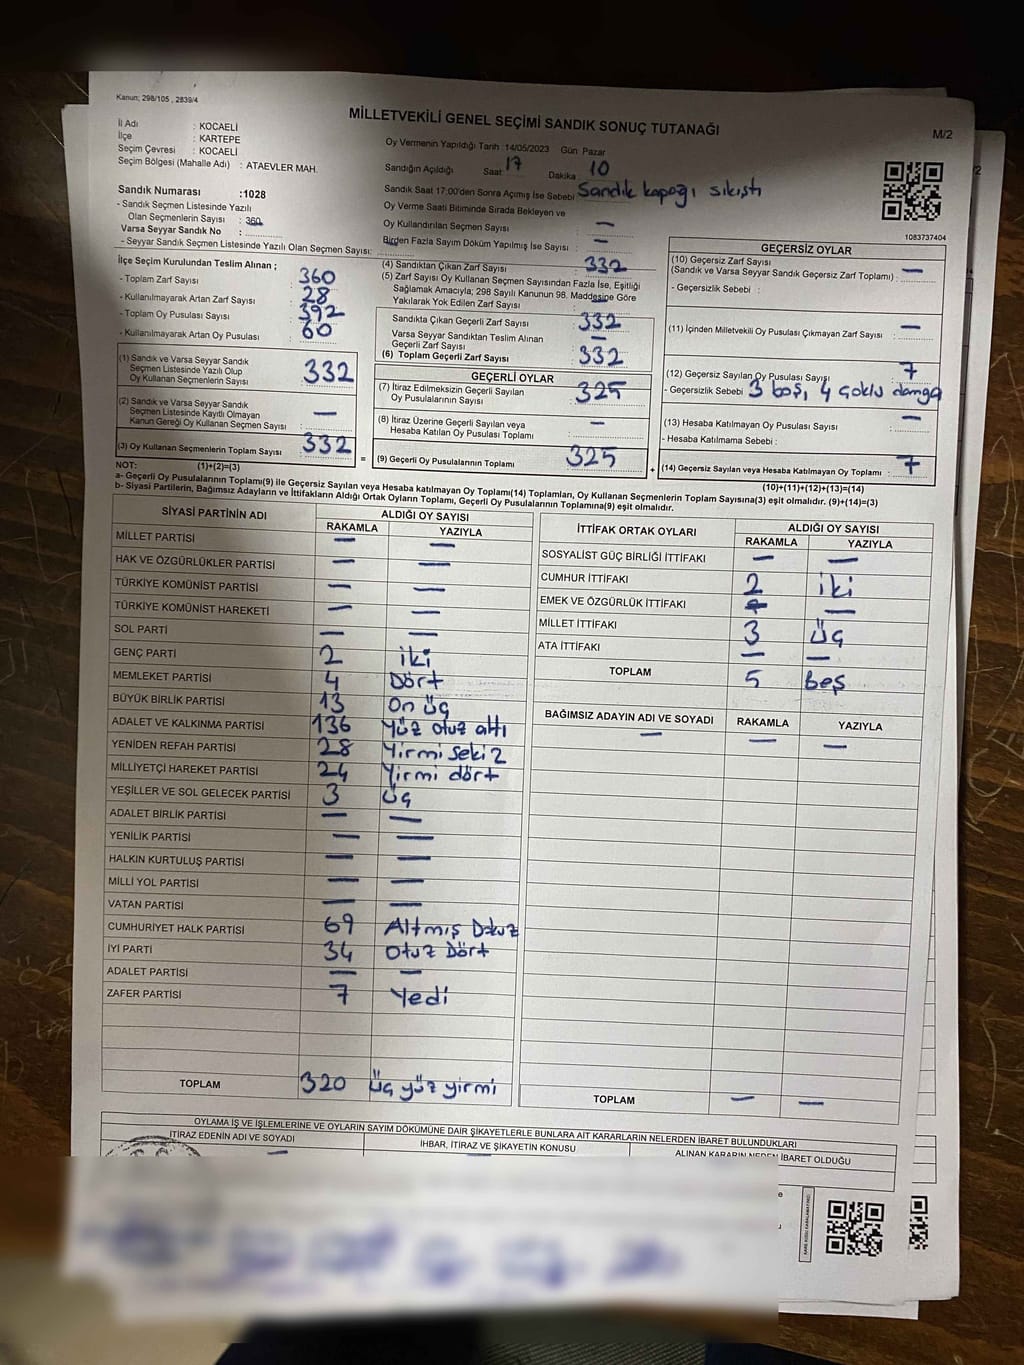 Kanun; 298/105 , 2839/4
MİLLETVEKİLİ GENEL SEÇİMİ SANDIK SONUÇ TUTANAĞI
M/2
İl Adı : KOCAELİ
İlçe : KARTEPE
Seçim Çevresi : KOCAELİ
Seçim Bölgesi (Mahalle Adı) : ATAEVLER MAH.
Sandık Numarası :1028
- Sandık Seçmen Listesinde Yazılı
Olan Seçmenlerin Sayısı : 360
Varsa Seyyar Sandık No :
- Seyyar Sandık Seçmen Listesinde Yazılı Olan Seçmen Sayısı:
Oy Vermenin Yapıldığı Tarih :14/05/2023 Gün Pazar
Sandığın Açıldığı Saat : 17 Dakika : 10
Sandık Saat 17:00'den Sonra Açılmış İse Sebebi : Sandık kapağı sıkıştı
Oy Verme Saati Bitiminde Sırada Bekleyen ve
Oy Kullandırılan Seçmen Sayısı : —
Birden Fazla Sayım Döküm Yapılmış İse Sayısı : —
1083737404
İlçe Seçim Kurulundan Teslim Alınan ;
- Toplam Zarf Sayısı : 360
- Kullanılmayarak Artan Zarf Sayısı : 28
- Toplam Oy Pusulası Sayısı : 392
- Kullanılmayarak Artan Oy Pusulası : 60
(1) Sandık ve Varsa Seyyar Sandık
Seçmen Listesinde Yazılı Olup
Oy Kullanan Seçmenlerin Sayısı : 332
(2) Sandık ve Varsa Seyyar Sandık
Seçmen Listesinde Kayıtlı Olmayan
Kanun Gereği Oy Kullanan Seçmen Sayısı : —
(3) Oy Kullanan Seçmenlerin Toplam Sayısı : 332
(4) Sandıktan Çıkan Zarf Sayısı : 332
(5) Zarf Sayısı Oy Kullanan Seçmen Sayısından Fazla İse, Eşitliği
Sağlamak Amacıyla; 298 Sayılı Kanunun 98. Maddesine Göre
Yakılarak Yok Edilen Zarf Sayısı : —
Sandıkta Çıkan Geçerli Zarf Sayısı : 332
Varsa Seyyar Sandıktan Teslim Alınan
Geçerli Zarf Sayısı : —
(6) Toplam Geçerli Zarf Sayısı : 332
GEÇERLİ OYLAR
(7) İtiraz Edilmeksizin Geçerli Sayılan
Oy Pusulalarının Sayısı : 325
(8) İtiraz Üzerine Geçerli Sayılan veya
Hesaba Katılan Oy Pusulası Toplamı : —
= (9) Geçerli Oy Pusulalarının Toplamı : 325 +
GEÇERSİZ OYLAR
(10) Geçersiz Zarf Sayısı
(Sandık ve Varsa Seyyar Sandık Geçersiz Zarf Toplamı) : —
- Geçersizlik Sebebi :
(11) İçinden Milletvekili Oy Pusulası Çıkmayan Zarf Sayısı : —
(12) Geçersiz Sayılan Oy Pusulası Sayısı : 7
- Geçersizlik Sebebi : 3 boş, 4 çoklu damga
(13) Hesaba Katılmayan Oy Pusulası Sayısı : —
- Hesaba Katılmama Sebebi :
(14) Geçersiz Sayılan veya Hesaba Katılmayan Oy Toplamı : 7
NOT: (1)+(2)=(3)
(10)+(11)+(12)+(13)=(14)
a- Geçerli Oy Pusulalarının Toplamı(9) ile Geçersiz Sayılan veya Hesaba katılmayan Oy Toplamı(14) Toplamları, Oy Kullanan Seçmenlerin Toplam Sayısına(3) eşit olmalıdır. (9)+(14)=(3)
b- Siyasi Partilerin, Bağımsız Adayların ve İttifakların Aldığı Ortak Oyların Toplamı, Geçerli Oy Pusulalarının Toplamına(9) eşit olmalıdır.
SİYASİ PARTİNİN ADI ALDIĞI OY SAYISI
RAKAMLA YAZIYLA
MİLLET PARTİSİ — —
HAK VE ÖZGÜRLÜKLER PARTİSİ — —
TÜRKİYE KOMÜNİST PARTİSİ — —
TÜRKİYE KOMÜNİST HAREKETİ — —
SOL PARTİ — —
GENÇ PARTİ 2 iki
MEMLEKET PARTİSİ 4 Dört
BÜYÜK BİRLİK PARTİSİ 13 On üç
ADALET VE KALKINMA PARTİSİ 136 Yüz otuz altı
YENİDEN REFAH PARTİSİ 28 Yirmi sekiz
MİLLİYETÇİ HAREKET PARTİSİ 24 Yirmi dört
YEŞİLLER VE SOL GELECEK PARTİSİ 3 üç
ADALET BİRLİK PARTİSİ — —
YENİLİK PARTİSİ — —
HALKIN KURTULUŞ PARTİSİ — —
MİLLİ YOL PARTİSİ — —
VATAN PARTİSİ — —
CUMHURİYET HALK PARTİSİ 69 Altmış Dokuz
İYİ PARTİ 34 Otuz Dört
ADALET PARTİSİ — —
ZAFER PARTİSİ 7 Yedi
TOPLAM 320 üç yüz yirmi
İTTİFAK ORTAK OYLARI ALDIĞI OY SAYISI
RAKAMLA YAZIYLA
SOSYALİST GÜÇ BİRLİĞİ İTTİFAKI — —
CUMHUR İTTİFAKI 2 iki
EMEK VE ÖZGÜRLÜK İTTİFAKI — —
MİLLET İTTİFAKI 3 üç
ATA İTTİFAKI — —
TOPLAM 5 beş
BAĞIMSIZ ADAYIN ADI VE SOYADI RAKAMLA YAZIYLA
— — —
TOPLAM — —
OYLAMA İŞ VE İŞLEMLERİNE VE OYLARIN SAYIM DÖKÜMÜNE DAİR ŞİKAYETLERLE BUNLARA AİT KARARLARIN NELERDEN İBARET BULUNDUKLARI
İTİRAZ EDENİN ADI VE SOYADI İHBAR, İTİRAZ VE ŞİKAYETİN KONUSU ALINAN KARARIN NEDEN İBARET OLDUĞU